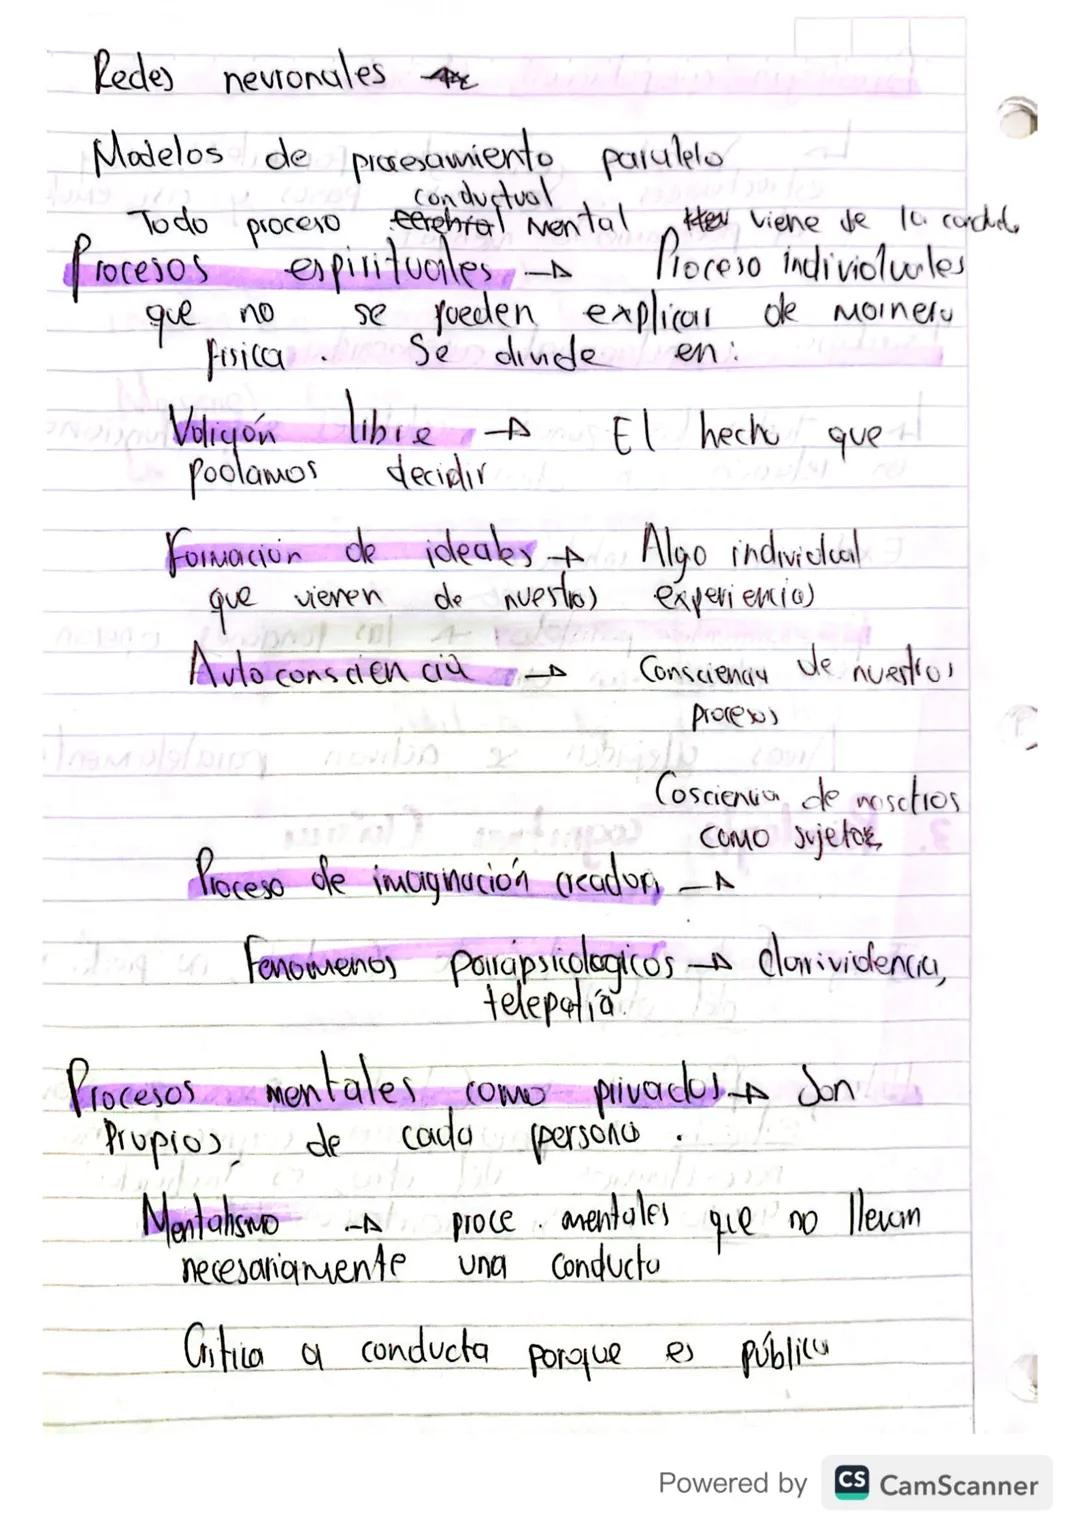 Redes neuronales
Modelos de procesamiento paralelo
conductual
Todo proceso cerebral mental viene de la conduct
Procesos espirituales → Proceso individuales
que no se pueden explicar de manera
física. Se divide en:
Volición libre → El hecho que
podamos decidir
Formación de ideales → Algo individual
que vienen de nuestras experiencias
Autoconsciencia → Consciencia de nuestros
procesos
Cosciencia de nosotros
como sujetos
Proceso de imaginación creadora →
Fenomenos parapsicologicos → clarividencia,
telepatía.
Procesos mentales como privados → Son
Propios de cada persona.
Mentalismo → proce. mentales que no llevan
necesariamente una conducta
Critica a conducta porque es pública
Powered by CS CamScanner